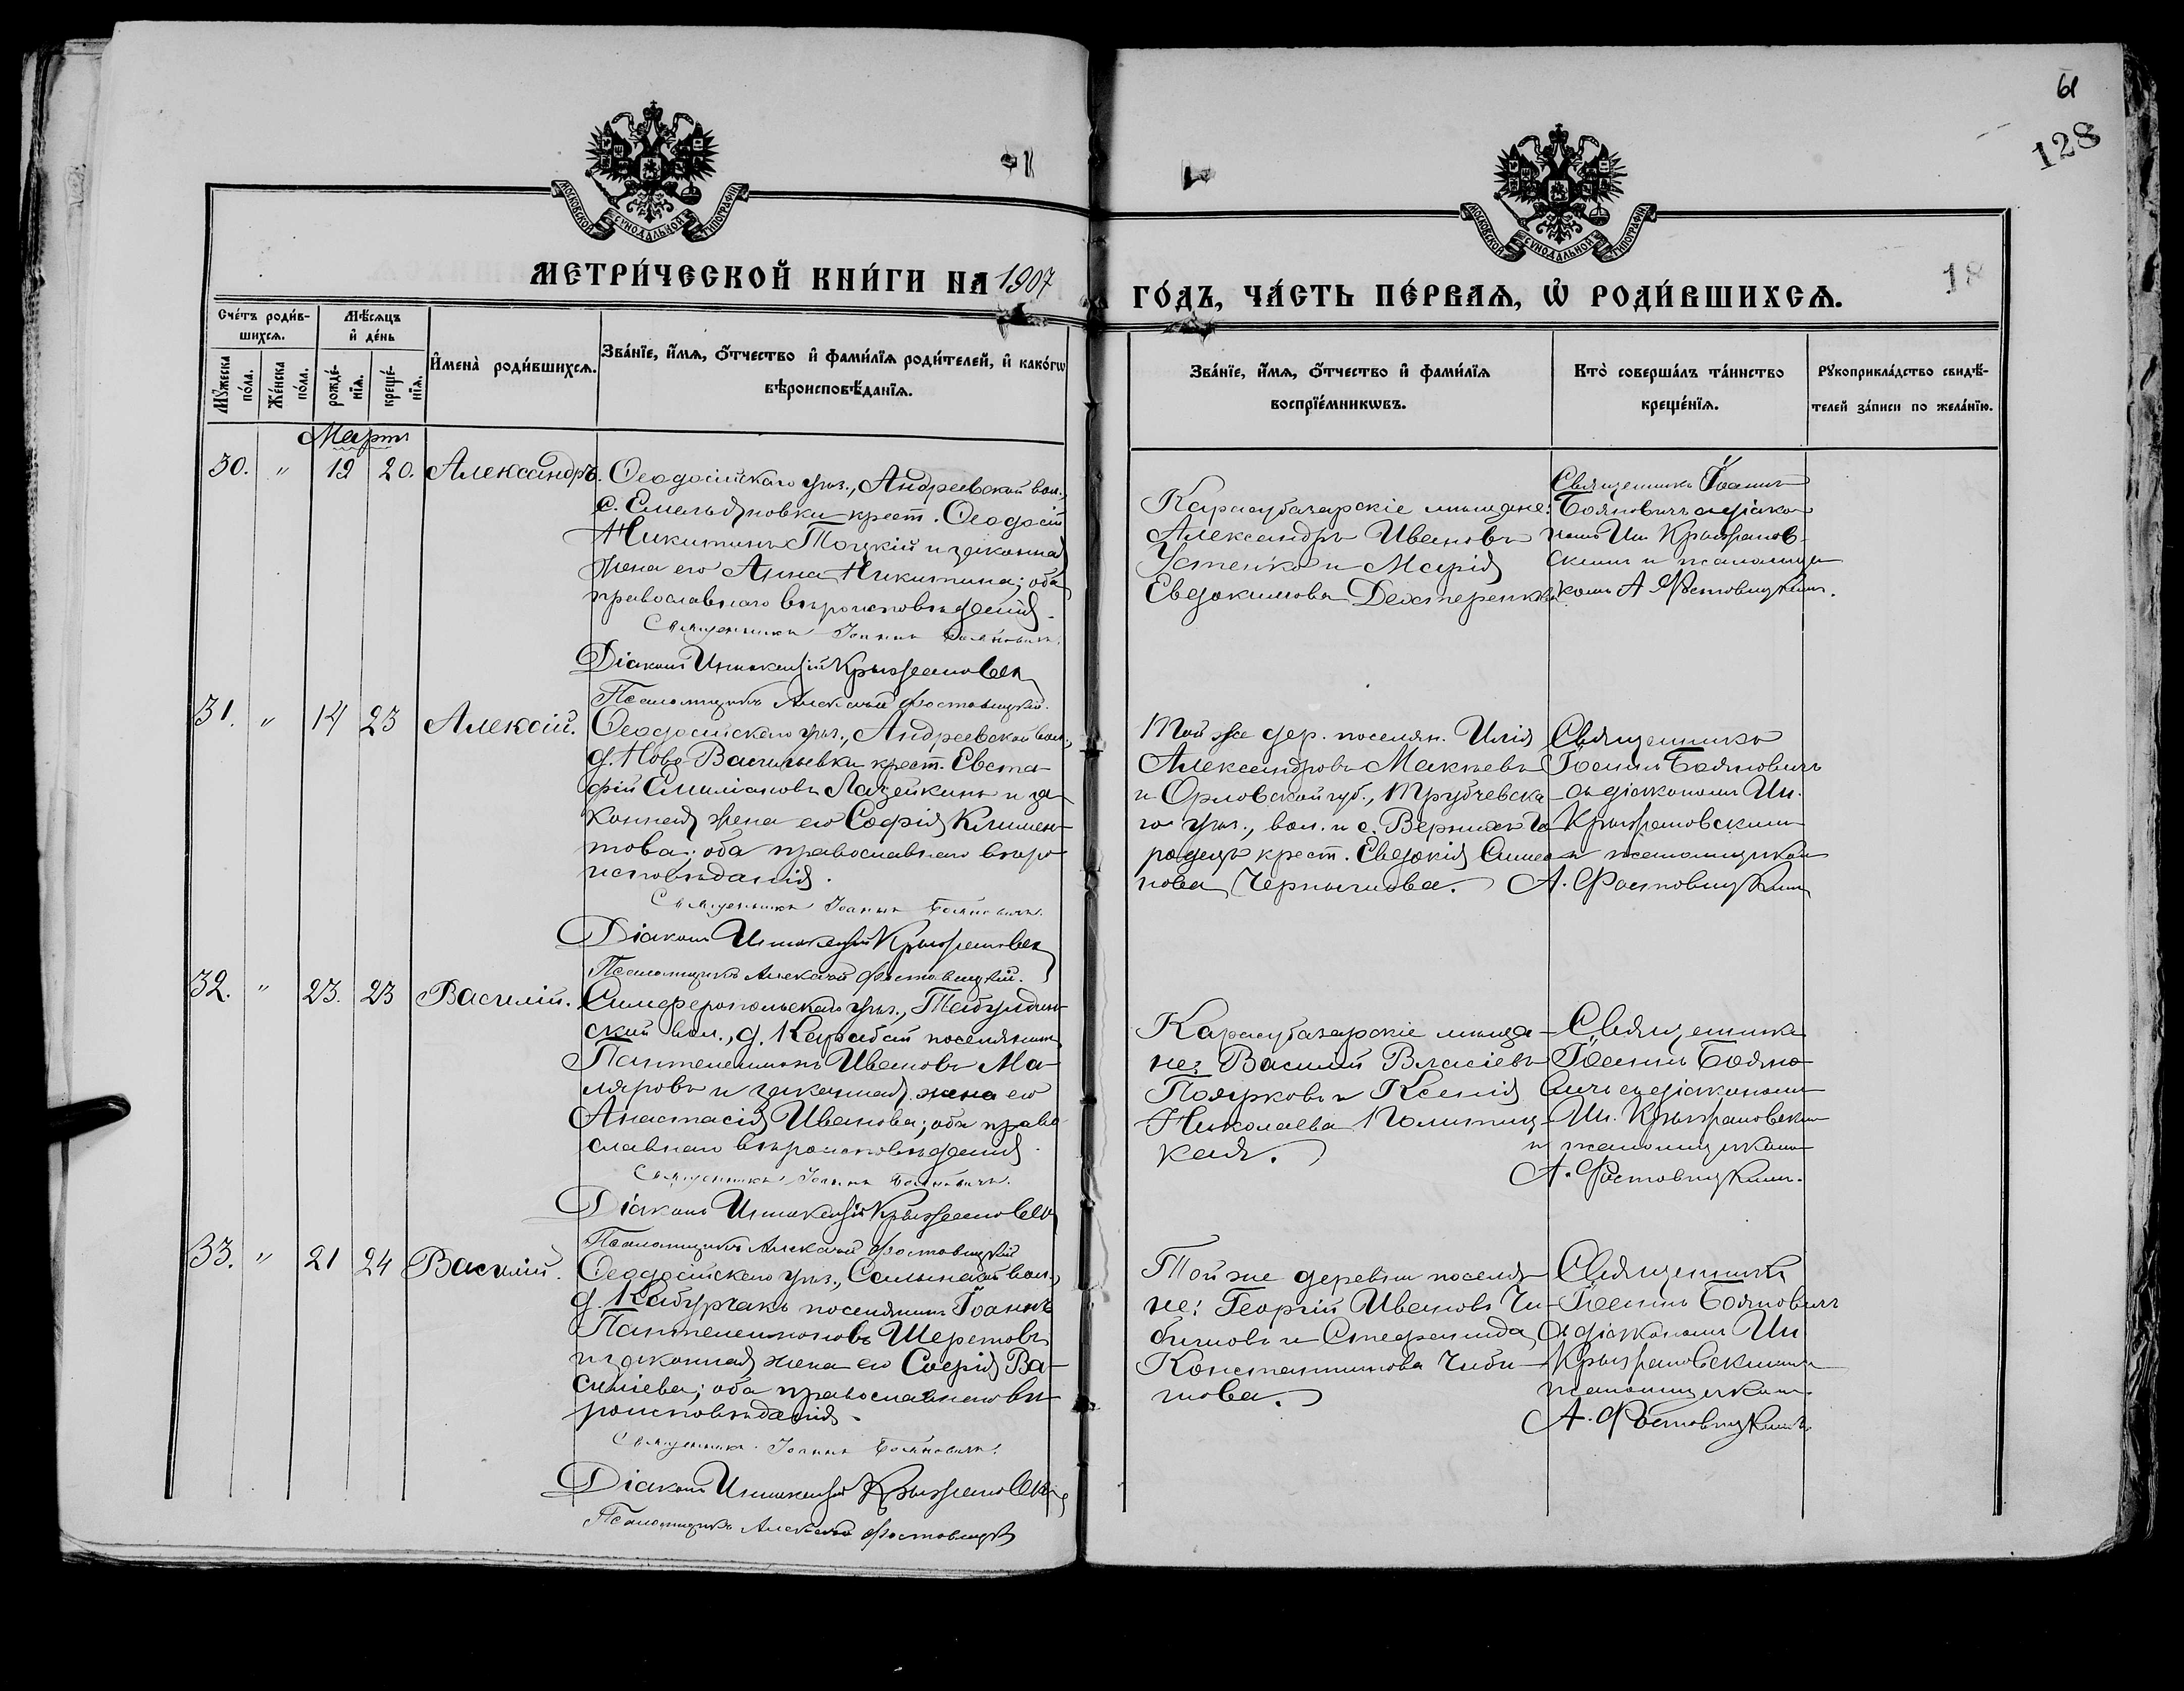 61
128
18
МОСКОВСКОЙ СѴНОДАЛЬНОЙ ТИПОГРАФІИ
МОСКОВСКОЙ СѴНОДАЛЬНОЙ ТИПОГРАФІИ
МЕТРИ́ЧЕСКОЙ КНИ́ГИ НА 1907
ГО́ДЪ, ЧА́СТЬ ПЕ́РВАѦ, Ѡ҆ РОДИ́ВШИХСѦ.
Сче́тъ роди́в-
шихсѧ.
Мѣ́сѧцъ
и҆ де́нь
Мꙋ́жеска
по́ла.
Же́нска
по́ла.
рожде́-
нїѧ.
креще́-
нїѧ.
И҆мена̀ роди́вшихсѧ.
Зва́нїе, и҆́мѧ, ѻ҆́тчество и҆ фами́лїѧ роди́телей, и҆ како́гѡ
вѣроисповѣ́данїѧ.
Зва́нїе, и҆́мѧ, ѻ҆́тчество и҆ фами́лїѧ
воспрїе́мникѡвъ.
Кто̀ соверша́лъ та́инство
креще́нїѧ.
Рꙋкоприкла́дство свидѣ́-
телей за́писи по жела́нїю.
Мартъ
30. " 19 20. Александръ.
Ѳеодосійскаго уѣз., Андреевской вол.,
с. Емельяновки крест. Ѳеодосій
Никитинъ Тоцкій и законная
жена его Анна Никитина; оба
православнаго вѣроисповѣданія.
Священникъ Іоаннъ Бояновичъ.
Діаконъ Иннокентій Крыжановскій
Псаломщикъ Алексѣй Фостовицкій.
Карасубазарскіе мѣщане:
Александръ Ивановъ
Устенко и Марія
Евдокимова Дехтеренкова
Священникъ Іоаннъ
Бояновичъ съ діако-
номъ Ин. Крыжанов-
скимъ и псаломщи-
комъ А. Фостовицкимъ.
31. " 14 23 Алексій.
Ѳеодосійскаго уѣз., Андреевской вол.,
д. Ново-Васильевки крест. Евста-
фій Емиліановъ Лазейкинъ и за-
конная жена его Софія Климен-
това; оба православнаго вѣро-
исповѣданія.
Священникъ Іоаннъ Бояновичъ.
Діаконъ Иннокентій Крыжановскій
Псаломщикъ Алексѣй Фостовицкій.
Той же дер. поселян. Илія
Александровъ Макѣевъ
и Орловской губ., Трубчевска-
го уѣз., вол. и с. Верхняго Го-
родца крест. Евдокія Симео-
нова Чернышова.
Священникъ
Іоаннъ Бояновичъ
съ діакономъ Ин.
Крыжановскимъ
и псаломщикомъ
А. Фостовицкимъ
32. " 23. 23 Василій.
Симферопольскаго уѣз., Табулдин-
ской вол., д. Карабай поселянинъ
Пантелеимонъ Ивановъ Ма-
ляровъ и законная жена его
Анастасія Иванова; оба право-
славнаго вѣроисповѣданія.
Священникъ Іоаннъ Бояновичъ.
Діаконъ Иннокентій Крыжановскій
Псаломщикъ Алексѣй Фостовицкій
Карасубазарскіе мѣща-
не: Василій Власіевъ
Поярковъ и Ксенія
Николаева Голитиц-
кая.
Священникъ
Іоаннъ Бояно-
вичъ съ діакономъ
Ин. Крыжановскимъ
и псаломщикомъ
А. Фостовицкимъ.
33. " 21 24 Василій.
Ѳеодосійскаго уѣз., Салынской вол.,
д. Кабурчакъ поселянинъ Іоаннъ
Пантелеимоновъ Шеретовъ
и законная жена его Софія Ва-
силіева; оба православнаго вѣ-
роисповѣданія.
Священникъ Іоаннъ Бояновичъ.
Діаконъ Иннокентій Крыжановскій
Псаломщикъ Алексѣй Фостовицкій
Той же деревни поселя-
не: Георгій Ивановъ Чи-
бишовъ и Стефанида
Константинова Чиби-
шова.
Священникъ
Іоаннъ Бояновичъ
съ діакономъ Ин.
Крыжановскимъ и
псаломщикомъ
А. Фостовицкимъ.